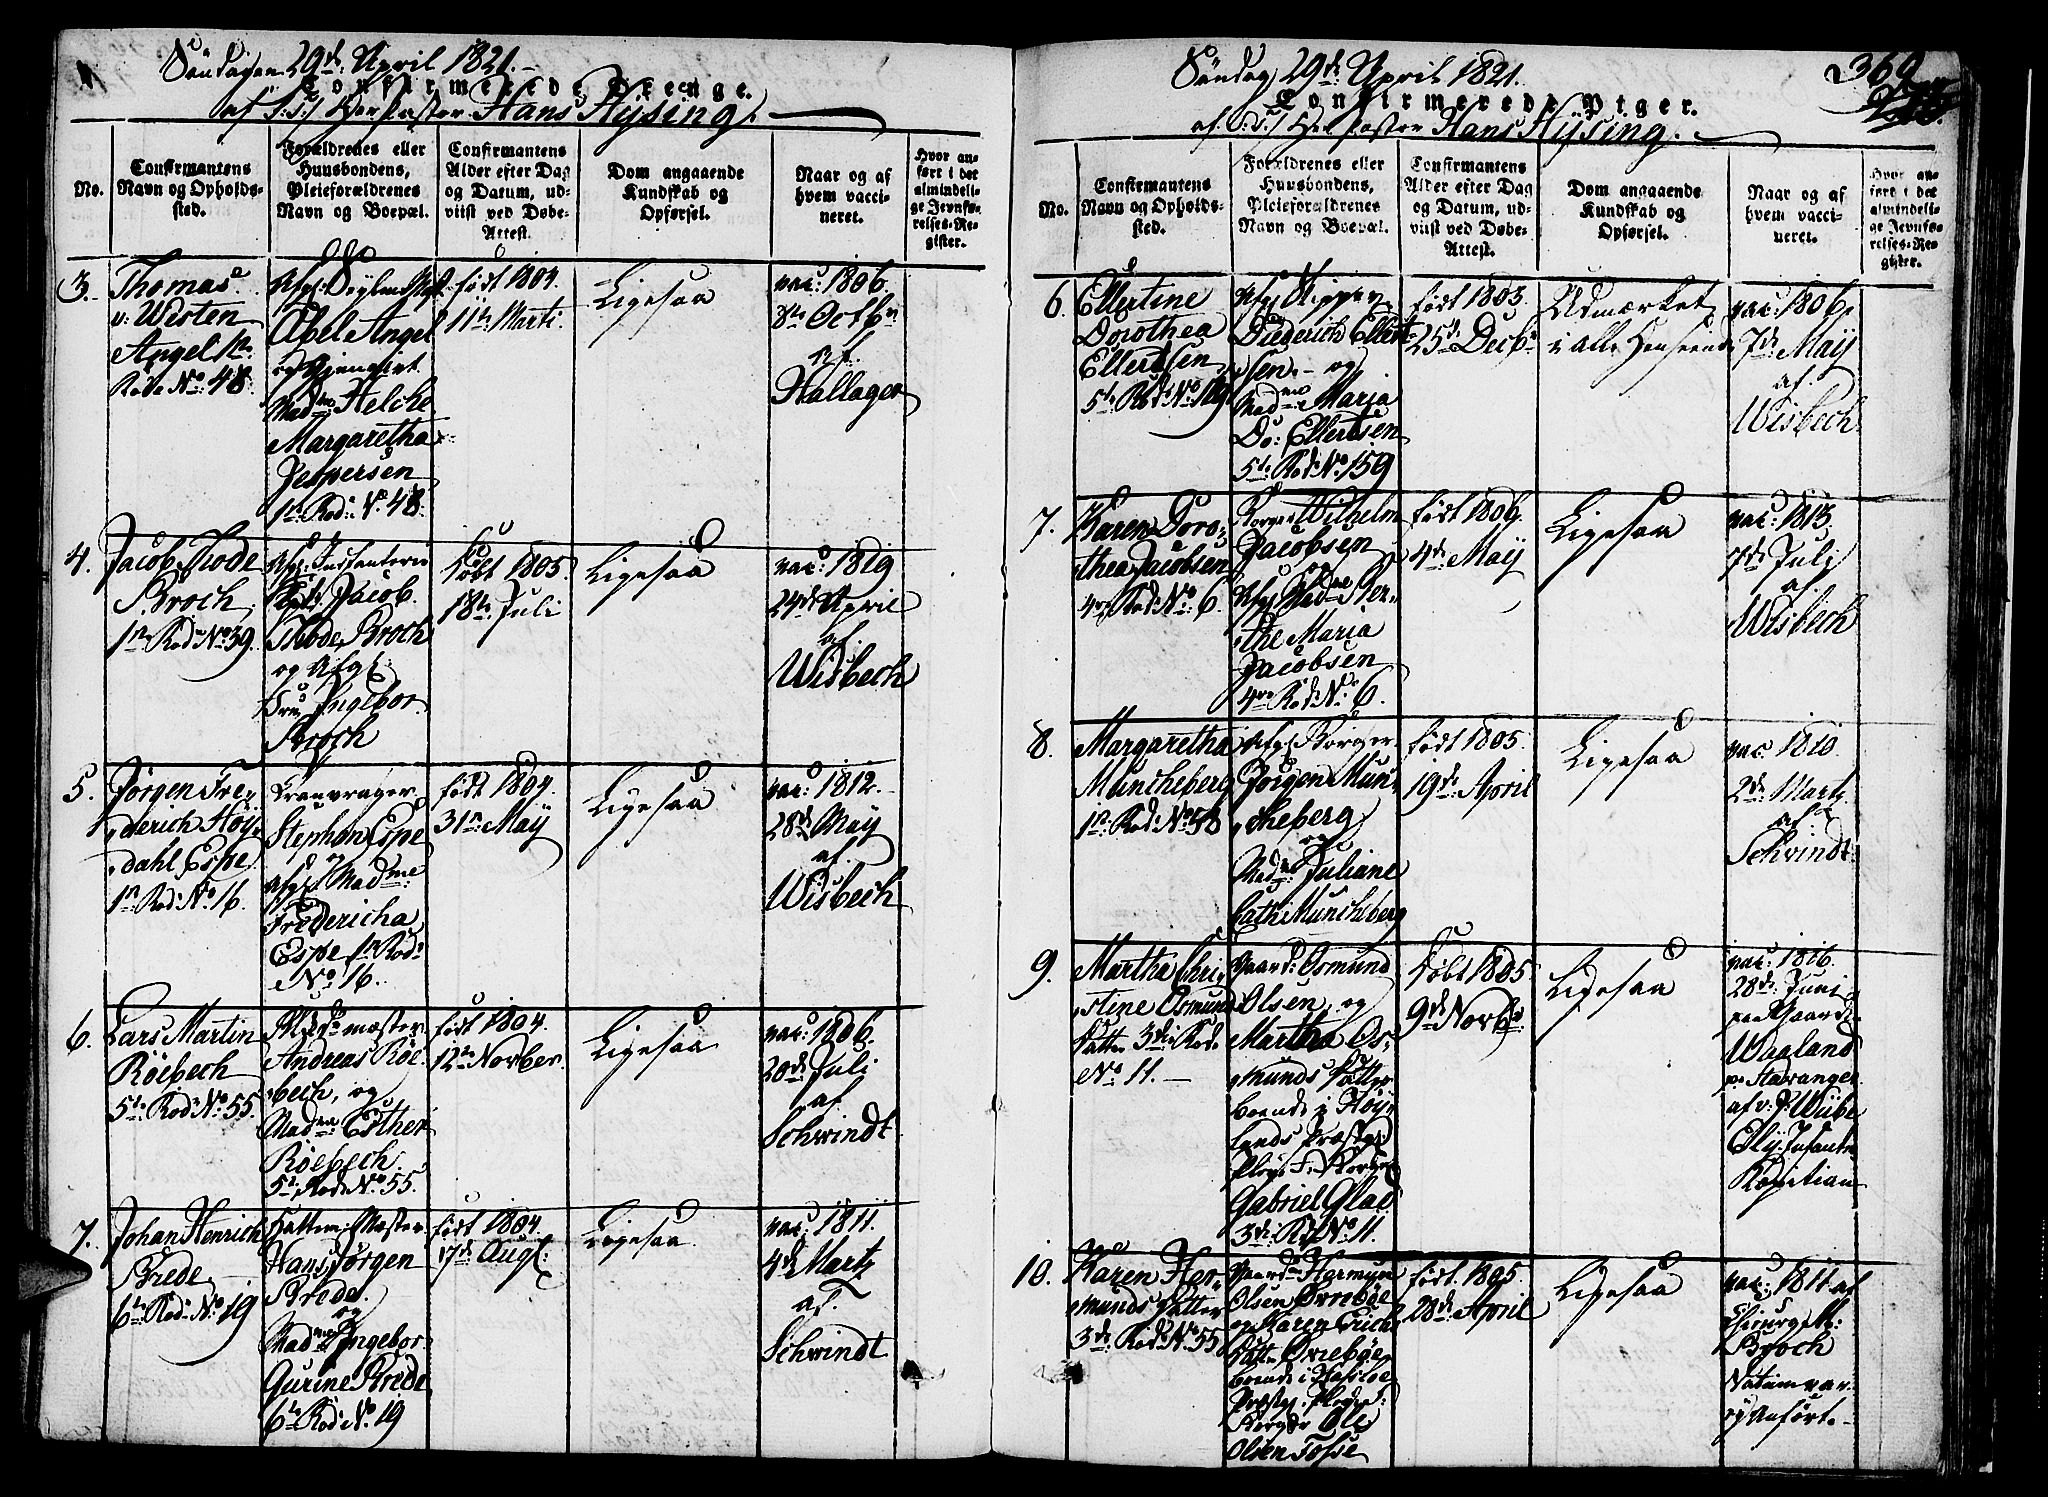 Søndagen 29de April 1821.
Confirmerede Drenge.
af S: T: Hr Pastor Hans Hysing.
No.
Confirmantens Navn og Opholds-sted.
Forældrenes eller Huusbondens, Pleieforældrenes Navn og Boepæl.
Confirmantens Alder efter Dag og Datum, ud-viist ved Døbe-Attest.
Dom angaaende Kundskab og Opførsel.
Naar og af hvem vacci-neret.
Hvor an-ført i det almindeli-ge Jevnfø-relses-Re-gister.
3.
Thomas
v: Westen
Angel 1te
Rode No. 48
Abel Angel
og Gjengivt
Madme Helche
Margaretha
Jespersen
1te Rode No. 48.
født 1804.
11te Marti.
Ligesaa
vac: 1806.
8de Octbr
af
Hallager
4.
Jacob Thode
Broch
1te Rode No. 39.
Afg: Infanterie
Capt: Jacob
Thode Broch
og Afg:
Fru Ingebor.
Broch
Døbt 1805.
18de Juli
Ligesaa
vac: 1819
24de April
af.
Wisbech
5.
Jørgen Fre-
derich Höy-
dahl Espe.
1te Rode No. 16.
Stephan Espe
og
Afg: Madme
Fredericha
Espe 1te Rode
No. 16.
født 1804.
31te May
Ligesaa
vac: 1812.
28de May
af.
Wisbech
6.
Lars Martin
Röebech
5te Rode No. 55.
Andreas Röe-
bech, og
Madme Esther
Röebech.
5te Rode No. 55.
født 1804.
12te Novber.
Ligesaa
vac: 1806.
20de Juli
af
Schwindt.
7.
Johan Henrich
Brede
6te Rode No. 19
Hattem: Mester
Hans Jørgen
Brede.
og
Madme Ingebor.
Gurine Brede
6te Rode No. 19
født 1804.
17de Augt
Ligesaa.
vac: 1811.
4de Martz
af.
Schwindt
Søndag 29de April 1821.
369
Confirmerede Piger.
af. S: T: Hr Pastor Hans Hysing.
No.
Confirmantens Navn og Opholds-sted.
Forældrenes eller Huusbondens, Pleieforældrenes Navn og Boepæl.
Confirmantens Alder efter Dag og Datum, ud-viist ved Døbe-Attest.
Dom angaaende Kundskab og Opførsel.
Naar og af hvem vacci-neret.
Hvor an-ført i det almindeli-ge Jevnfø-relses-Re-gister.
6.
Ellertine
Dorothea
Ellertsen
5te Rode No. 159
Afg: Skipper
Diederich Ellert-
sen - og
Madme Maria
Do: Ellertsen
5te Rode No. 159
født 1803.
25de Decbr
Udmærket
i alle Henseende
vac: 1806,
7de May
af.
Wisbech.
7.
Karen Doro-
thea Jacobsen
4de Rode No. 6.
Borger Wilhelm
Jacobsen
og
Afg: Madme Ber-
the Maria
Jacobsen
4de Rode No. 6.
født 1806.
4de May
Ligesaa
vac: 1813.
7de Juli
af
Wisbech
8.
Margaretha
Müncheberg
1te Rode No. 58
Afg: Borger
Jørgen Mun-
cheberg
og
Madme Juliane
Cath: Munchberg
født 1805.
19de April
Ligesaa
vac. 1810.
2de Martz.
af
Schvindt.
9.
Martha Chri-
stine Osmunds
Datter 3de Rode
No. 11.
Gaard: Osmund
Olsen, og
Martha Os-
munds Datter
boende i Höy-
lands Præstg:
Pleje F: Borger
Gabriel Glad
3de Rode No. 11.
Døbt 1805
9de Novbr
Ligesaa
vac: 1816.
28de Juni
paa Gaarden
Waaland
pr Stavanger
af v: P. Wiibe
Olj: Infanterie
Kapitain
10.
Karen Her-
munds Datter
3de Rode No. 55
Gaardm Harmun
Olsen Ovreböe
og Karen Erichs
Datter Ovreböe
boende i Hafsloe
Præstg: Plejef:
Borger Ole
Olsen Fosse
født. 1805.
28de April
Ligesaa
vac: 1811 af
Chirurg M:
Broch
Datum var
ey Anførte.